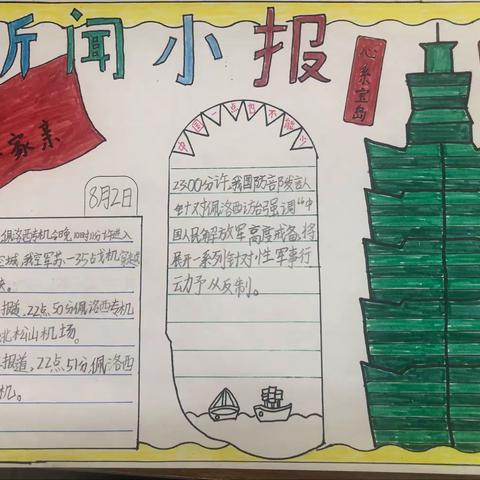 新闻小报
家亲
心系宝岛
8月2日
中国一点也不能少
佩洛西专机今晚10时11分许进入
我空军苏-35战机
报道,22点50分佩洛西专机
松山机场。
报道,22点51分佩洛西
机。
23:00分许,我国防部发言人
针对佩洛西访台强调“中
国人民解放军高度戒备,将
展开一系列针对性军事行
动予以反制。